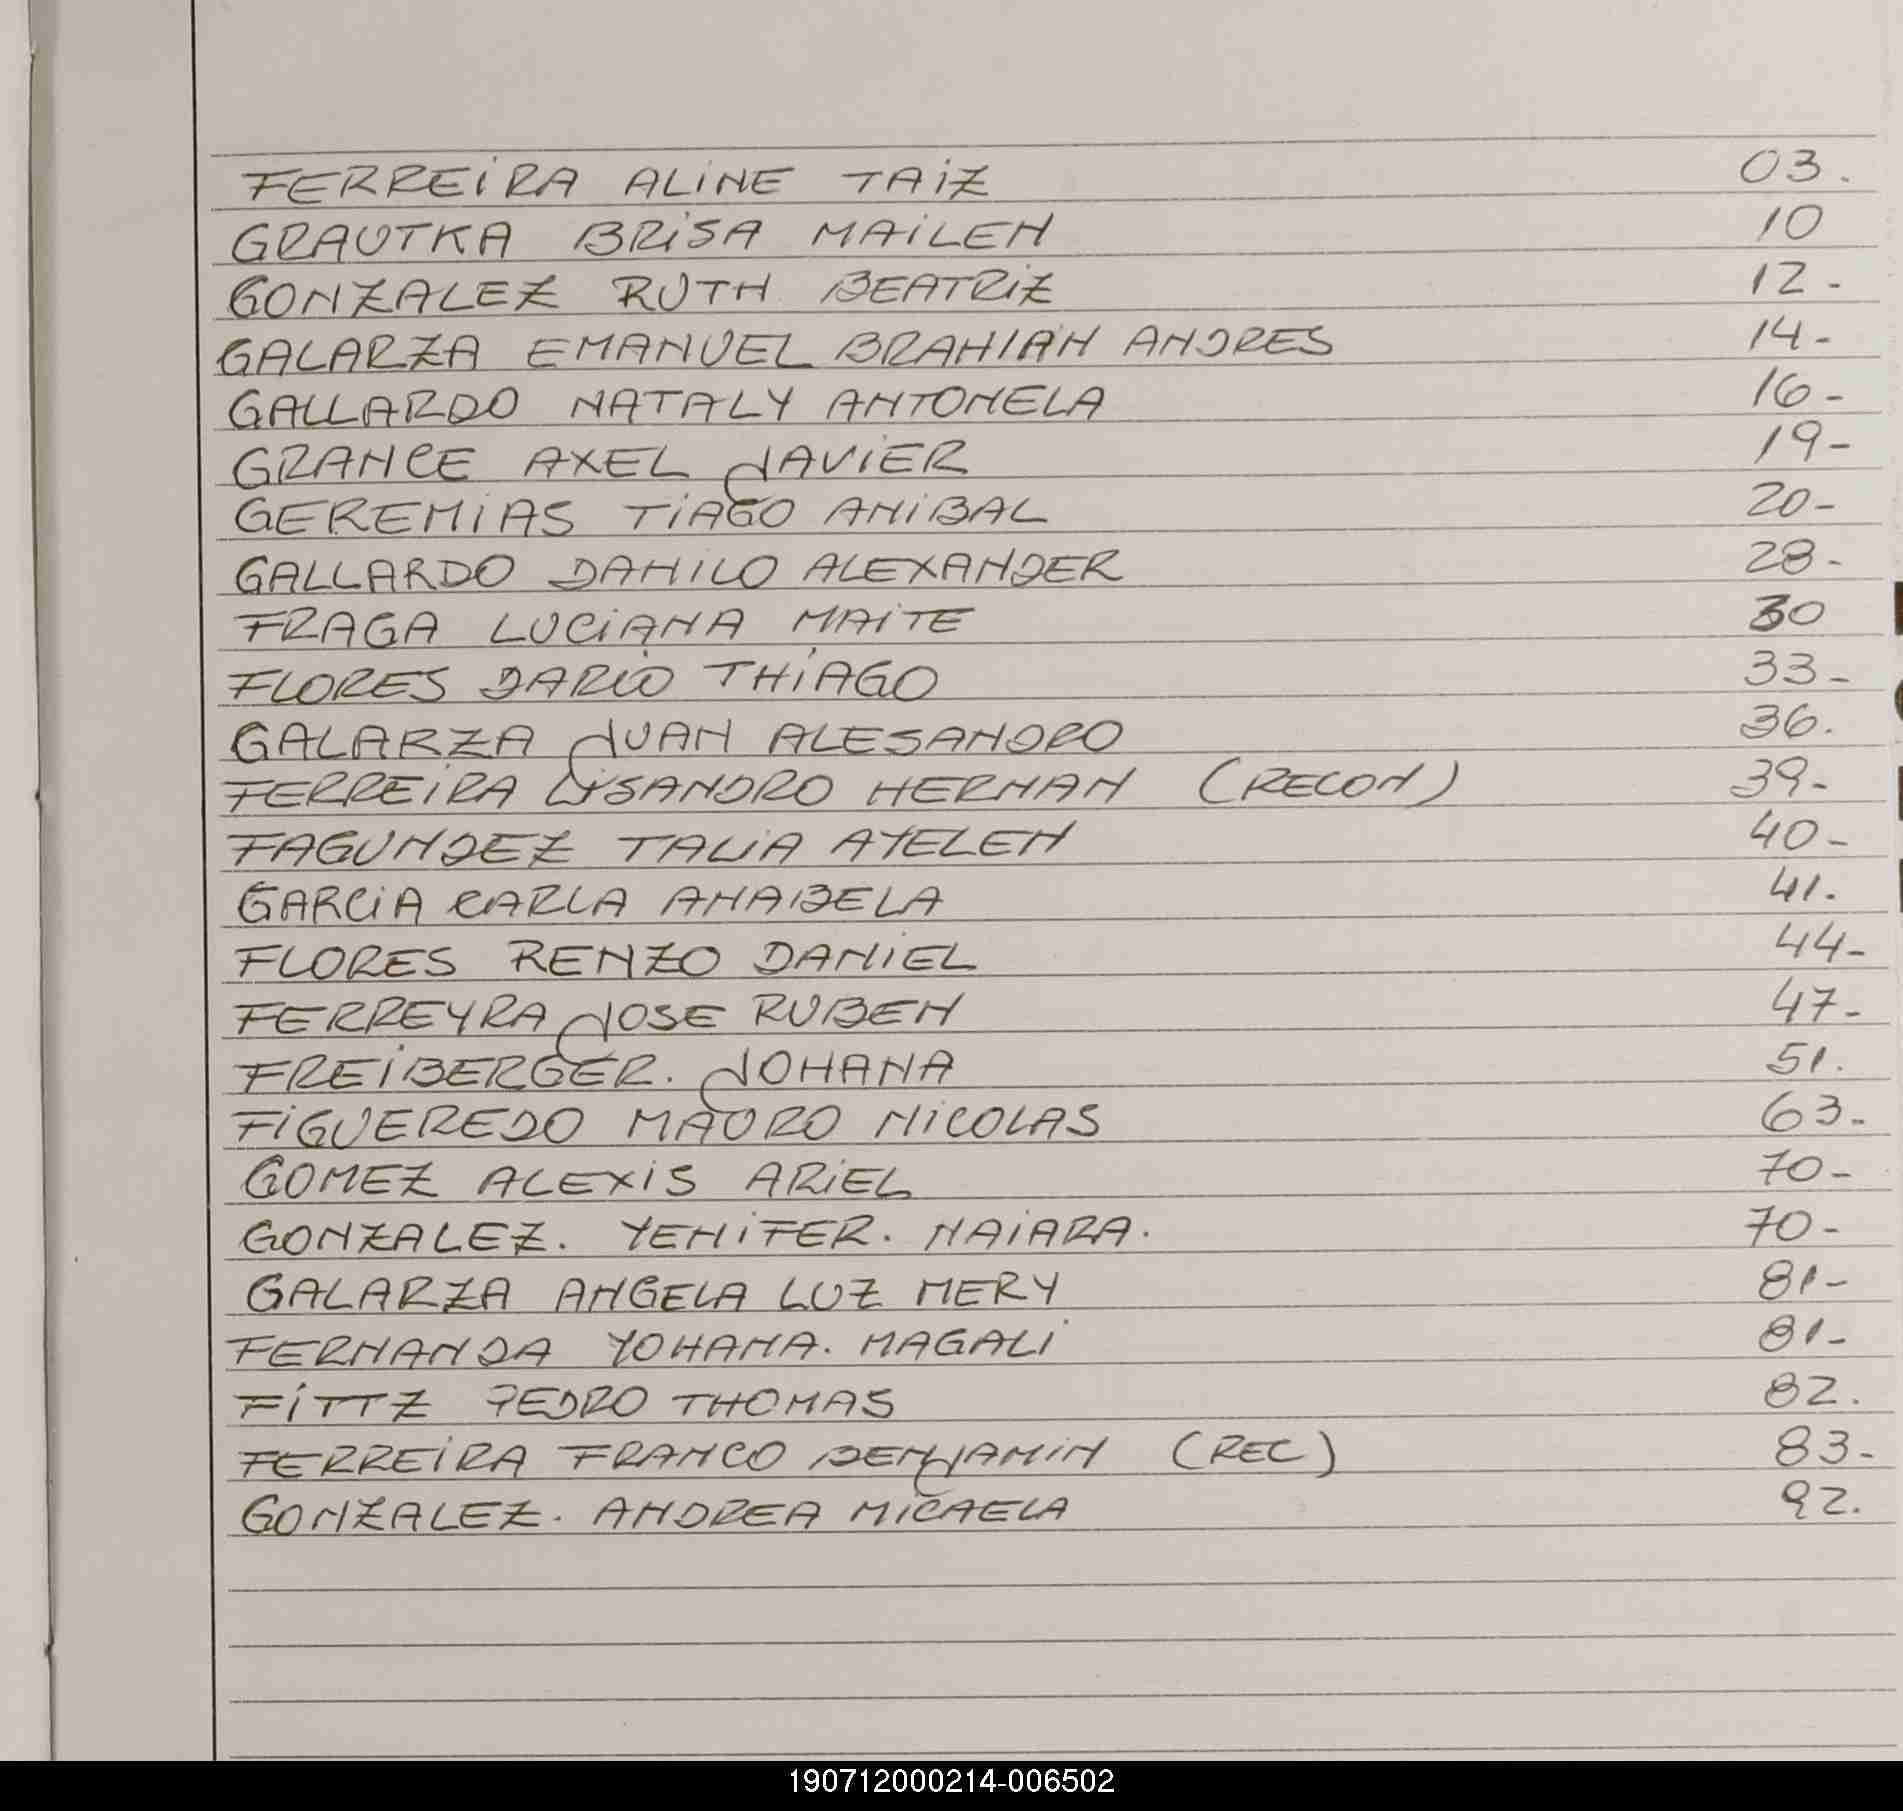 FERREiRA ALiNE TAiZ 03.
GRAUTKA BRiSA MAiLEN 10
GONZALEZ RUTH BEATRiZ 12-
GALARZA EMANUEL BRAHIAN ANDRES 14-
GALLARDO NATALY ANTONELA 16-
GRANCE AXEL JAViER 19-
GEREMiAS TiAGO ANiBAL 20-
GALLARDO DANiLO ALEXANDER 28-
FRAGA LUCiANA MAiTE 30
FLORES DARiO THiAGO 33-
GALARZA JUAN ALESANDRO 36.
FERREiRA LiSANDRO HERNAN (RECON) 39-
FAGUNDEZ TALiA AYELEN 40-
GARCiA CARLA ANABELA 41.
FLORES RENZO DANiEL 44-
FERREYRA JOSE RUBEN 47-
FREiBERGER. JOHANA 51.
FiGUEREDO MAURO NiCOLAS 63-
GOMEZ ALEXiS ARiEL 70-
GONZALEZ. YENiFER. NAiARA. 70-
GALARZA ANGELA LUZ MERY 81-
FERNANDA YOHANA. MAGALi 81-
FiTTZ PEDRO THOMAS 82.
FERREiRA FRANCO BENJAMiN (REC) 83-
GONZALEZ. ANDREA MiCAELA 92.
190712000214-006502